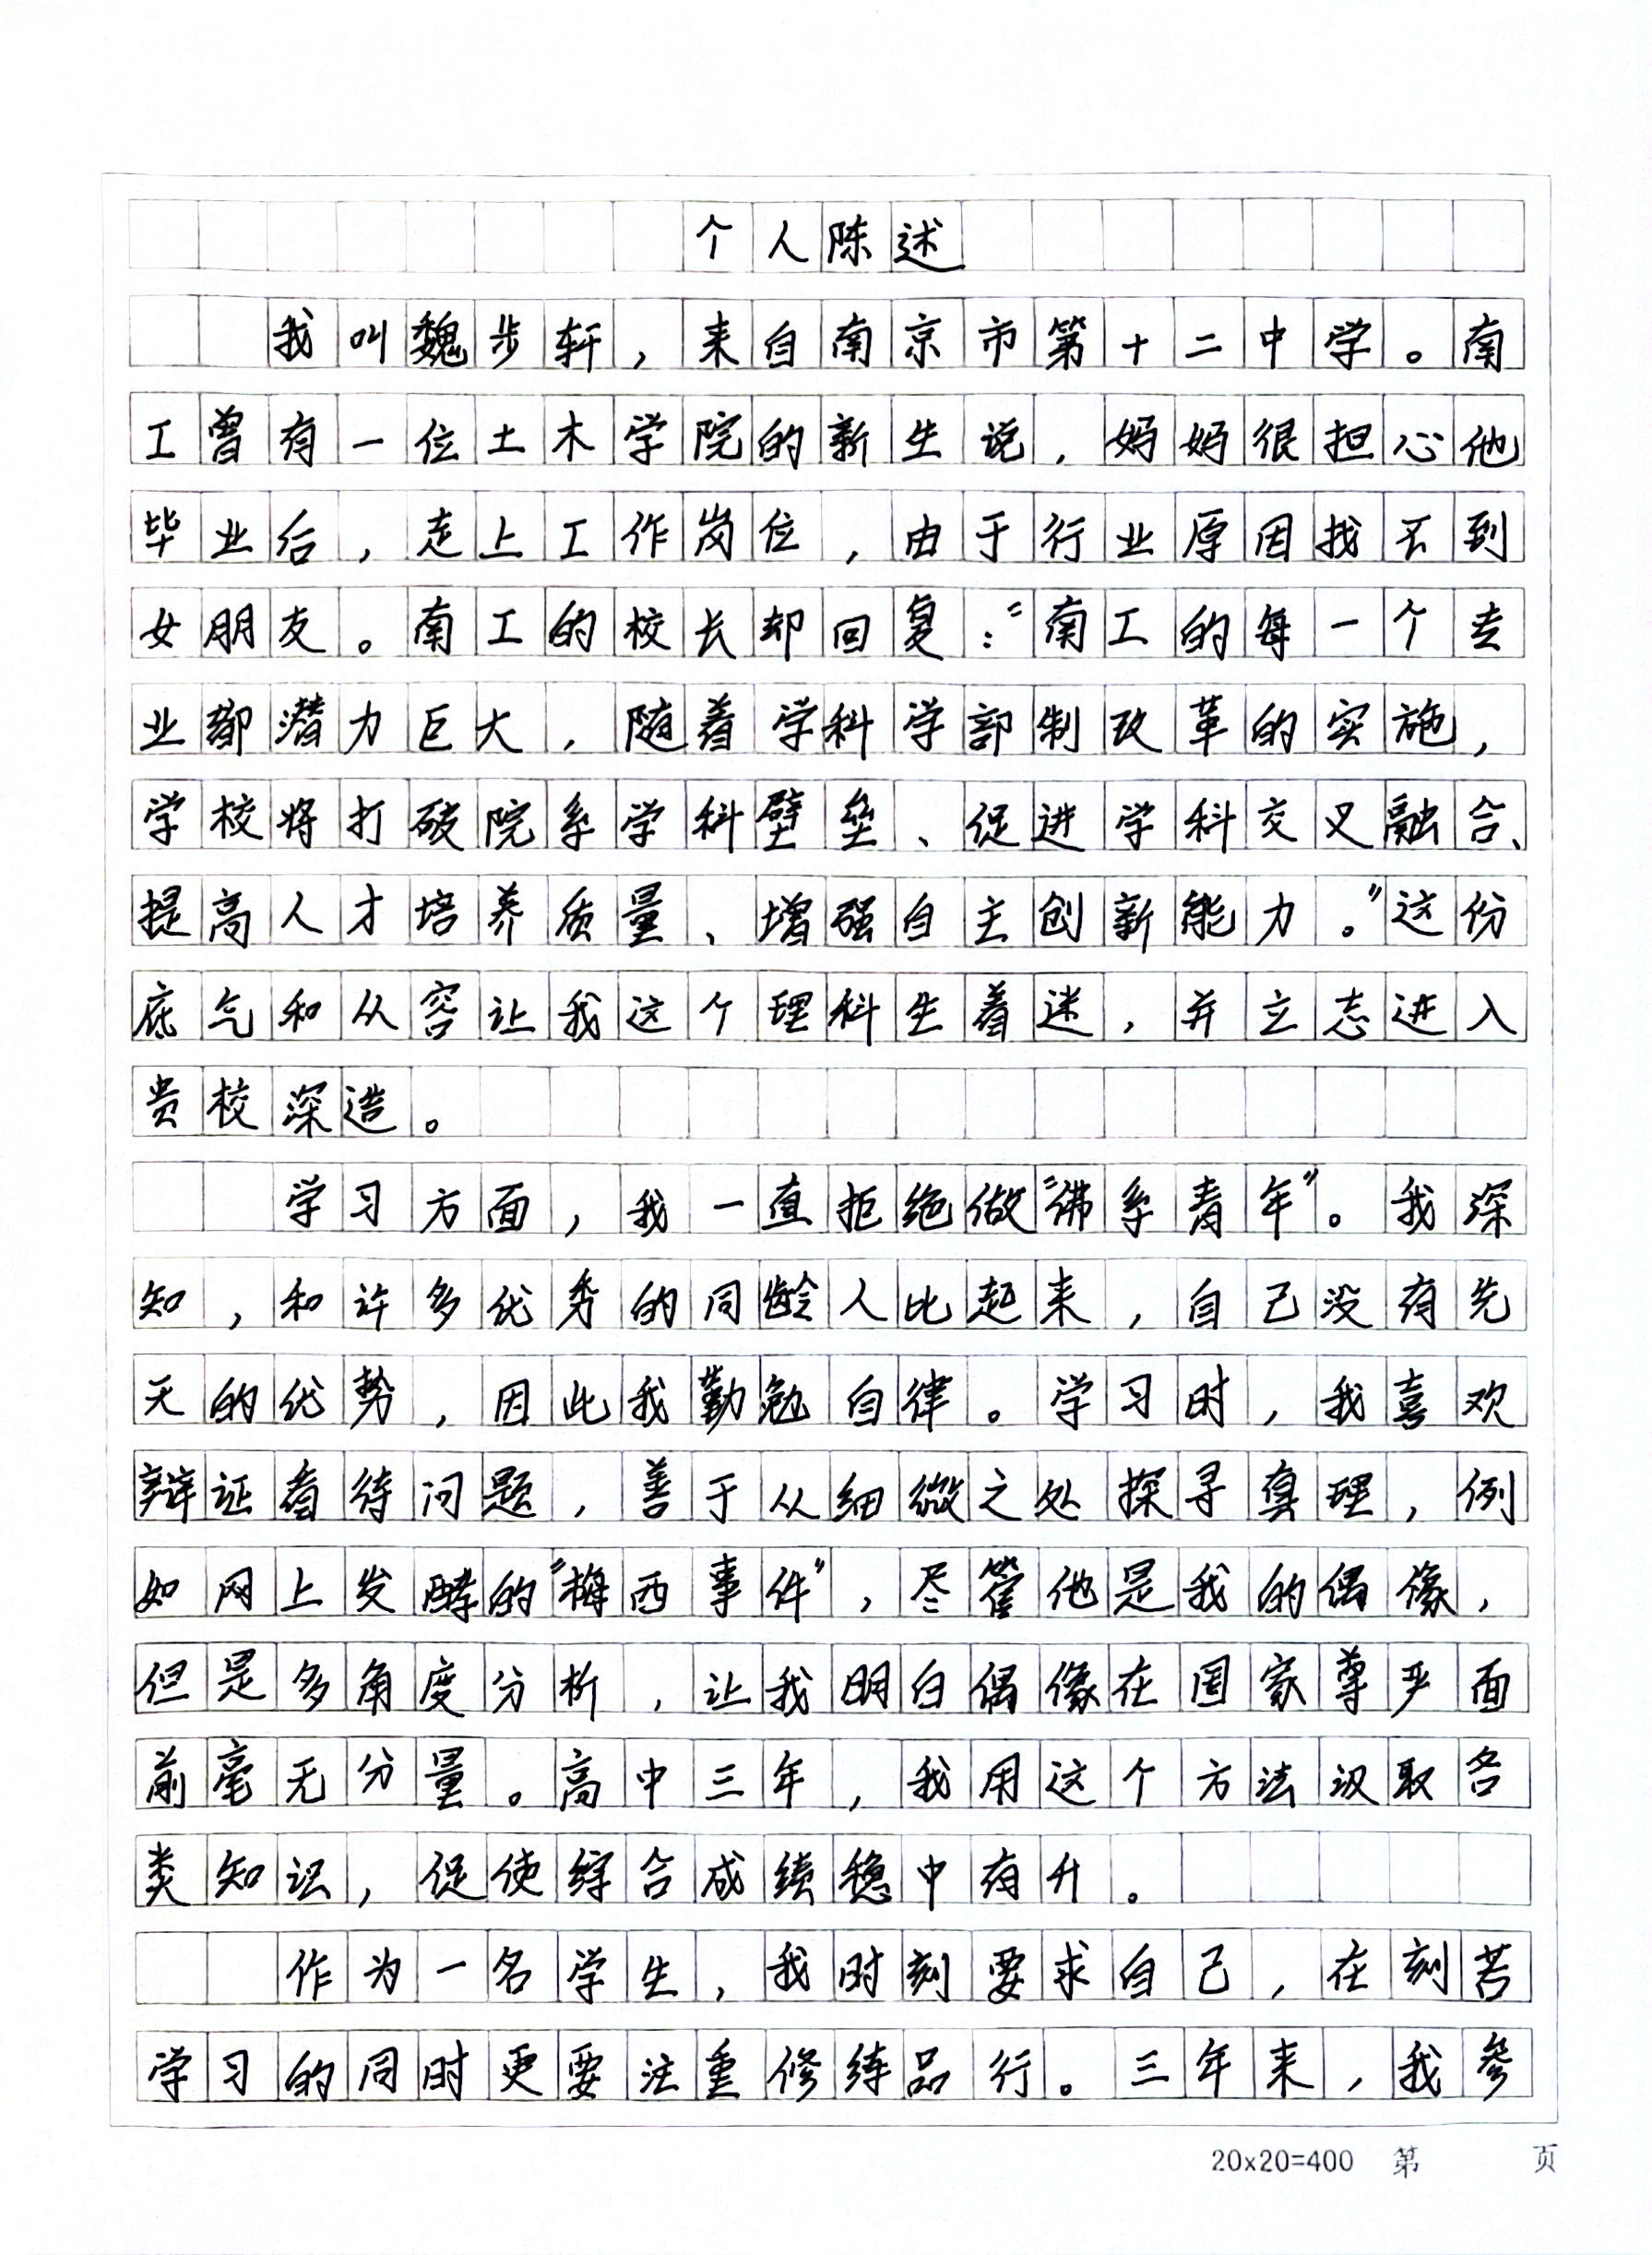 个人陈述
我叫魏步轩，来自南京市第十二中学。南
工曾有一位土木学院的新生说，妈妈很担心他
毕业后，走上工作岗位，由于行业原因找不到
女朋友。南工的校长却回复：“南工的每一个专
业都潜力巨大，随着学科学部制改革的实施，
学校将打破院系学科壁垒、促进学科交叉融合、
提高人才培养质量、增强自主创新能力。”这份
底气和从容让我这个理科生着迷，并立志进入
贵校深造。
学习方面，我一直拒绝做“佛系青年”。我深
知，和许多优秀的同龄人比起来，自己没有先
天的优势，因此我勤勉自律。学习时，我喜欢
辩证看待问题，善于从细微之处探寻真理，例
如网上发酵的“梅西事件”，尽管他是我的偶像，
但是多角度分析，让我明白偶像在国家尊严面
前毫无分量。高中三年，我用这个方法汲取各
类知识，促使综合成绩稳中有升。
作为一名学生，我时刻要求自己，在刻苦
学习的同时更要注重修炼品行。三年来，我参
20x20=400 第 页